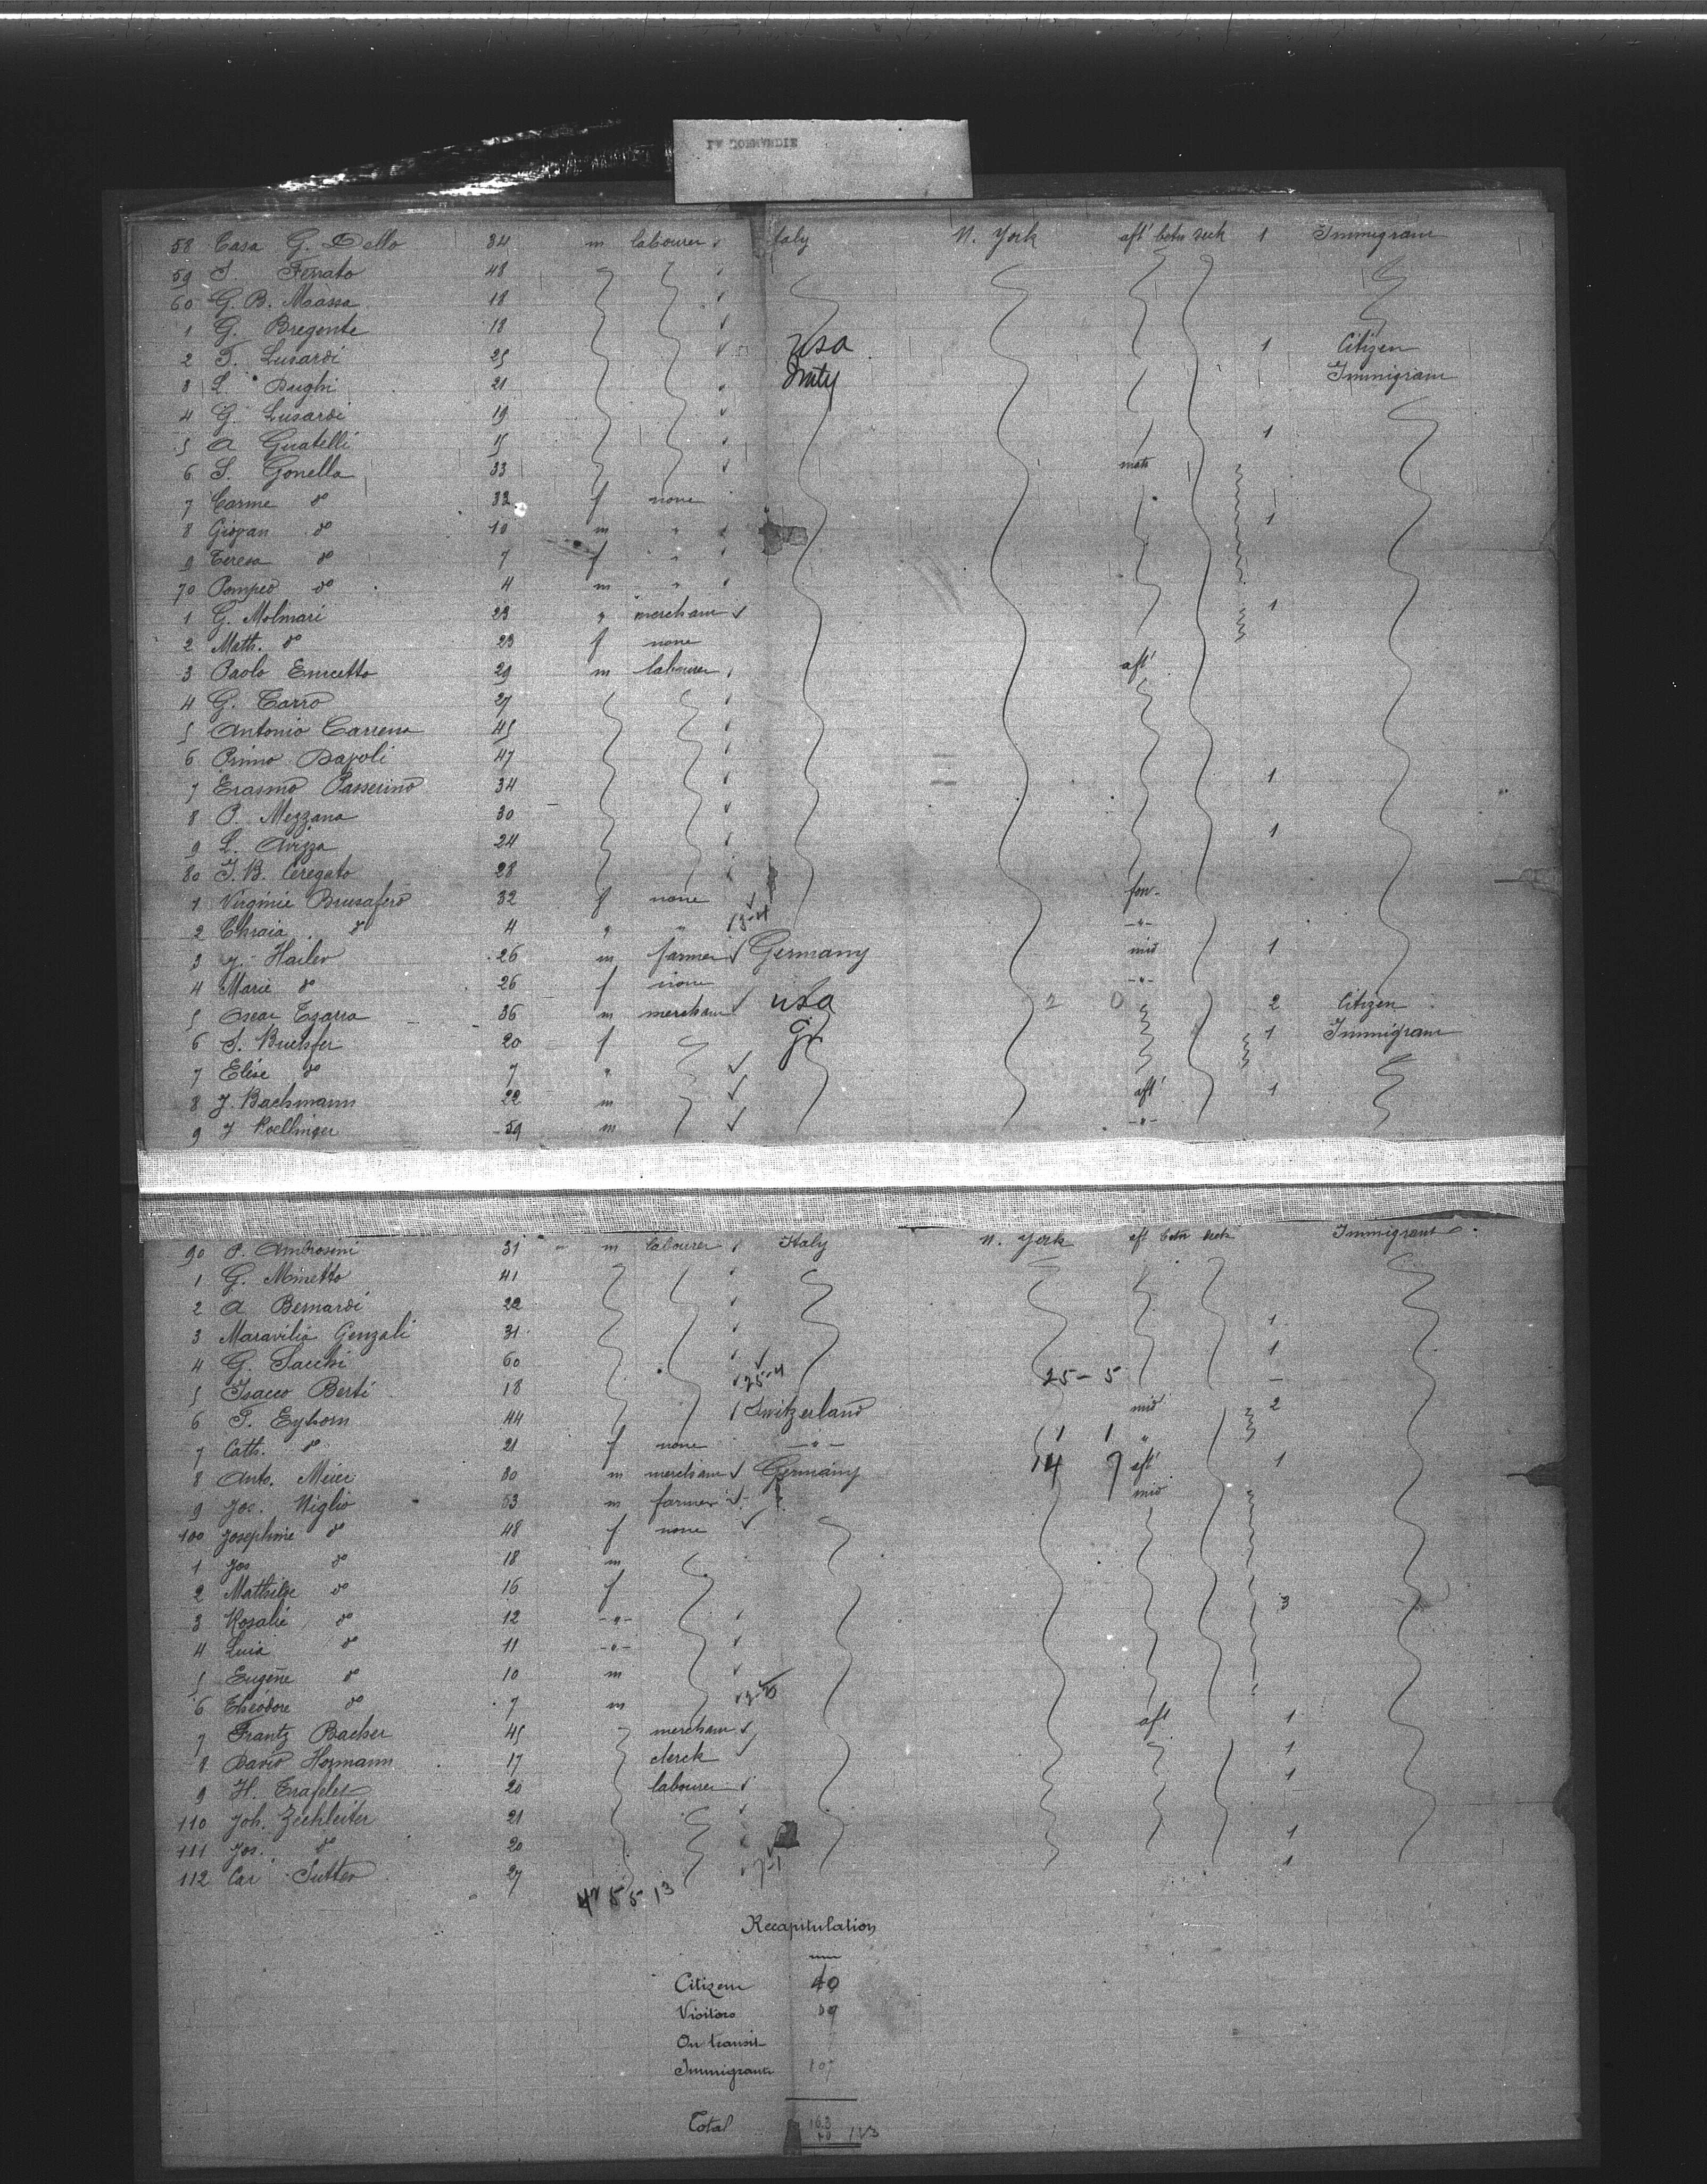 LA NORMANDIE
58 Casa G. Dello 34 m labourer Italy N. York aft betw deck 1 Immigrant
59 S. Ferrato 48
60 G. B. Massa 18
1 G. Bregente 18
2 T. Lusardi 25 USA 1 Citizen
3 L. Bughi 21 Italy Immigrant
4 G. Lusardi 19
5 A Guatelli 15 1
6 S. Gonella 33 mats
7 Carme do 32 f none
8 Giovan do 10 m " 1
9 Teresa do 7 f "
70 Pompeo do 4 m "
1 G. Molmari 23 " merchant 1
2 Math. do 23 f none
3 Paolo Enrcetto 29 m labourer aft
4 G. Tarro 27
5 Antonio Carrena 45
6 Primo Dapoli 47
7 Erasmo Passerino 34 1
8 P. Mezzana 30
9 L. Avizza 24 1
80 J. B. Ceregato 28
1 Virginie Brusafero 32 f none for-
2 Chraia do 4 " " -"-
3 J. Hailer 26 m farmer Germany mid 1
4 Marie do 26 f none -"-
5 Oscar Tzarra 36 m merchant USA 2 0 2 Citizen
6 S. Buehsfer 20 f Gr 1 Immigrant
7 Elise do 7 "
8 J. Bachmann 22 m aft 1
9 J Koellinger 59 m -"-
90 P. Ambrosini 31 m labourer Italy N. York aft betw deck Immigrant
1 G. Minetto 41
2 A Bernardi 22
3 Maravilia Genzali 31 1
4 G. Sacchi 60 1
5 Isacco Berti 18 25-4 25-5
6 T. Eyhorn 44 Switzerland mid 2
7 Cath. do 21 f none -"- 1 1 "
8 Anto. Meier 30 m merchant Germany 14 9 aft 1
9 Jos. Niglio 53 m farmer mid
100 Josephine do 48 f none
1 Jos do 18 m
2 Mathilde do 16 f 3
3 Rosalie do 12 -"-
4 Luia do 11 -"-
5 Eugene do 10 m
6 Théodore do 7 m
7 Frantz Bacher 45 merchant aft 1
8 David Hormann 17 clerck 1
9 H. Trafelet 20 labourer 1
110 Joh. Zechleiter 21
111 Jos. do 20 1
112 Car Sutter 27 7-1 1
47 5 5 13
Recapitulation
Citizen 40
Visitors 09
On transit
Immigrants 107
Total 163